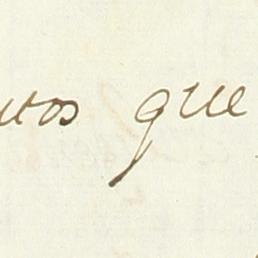 utos que